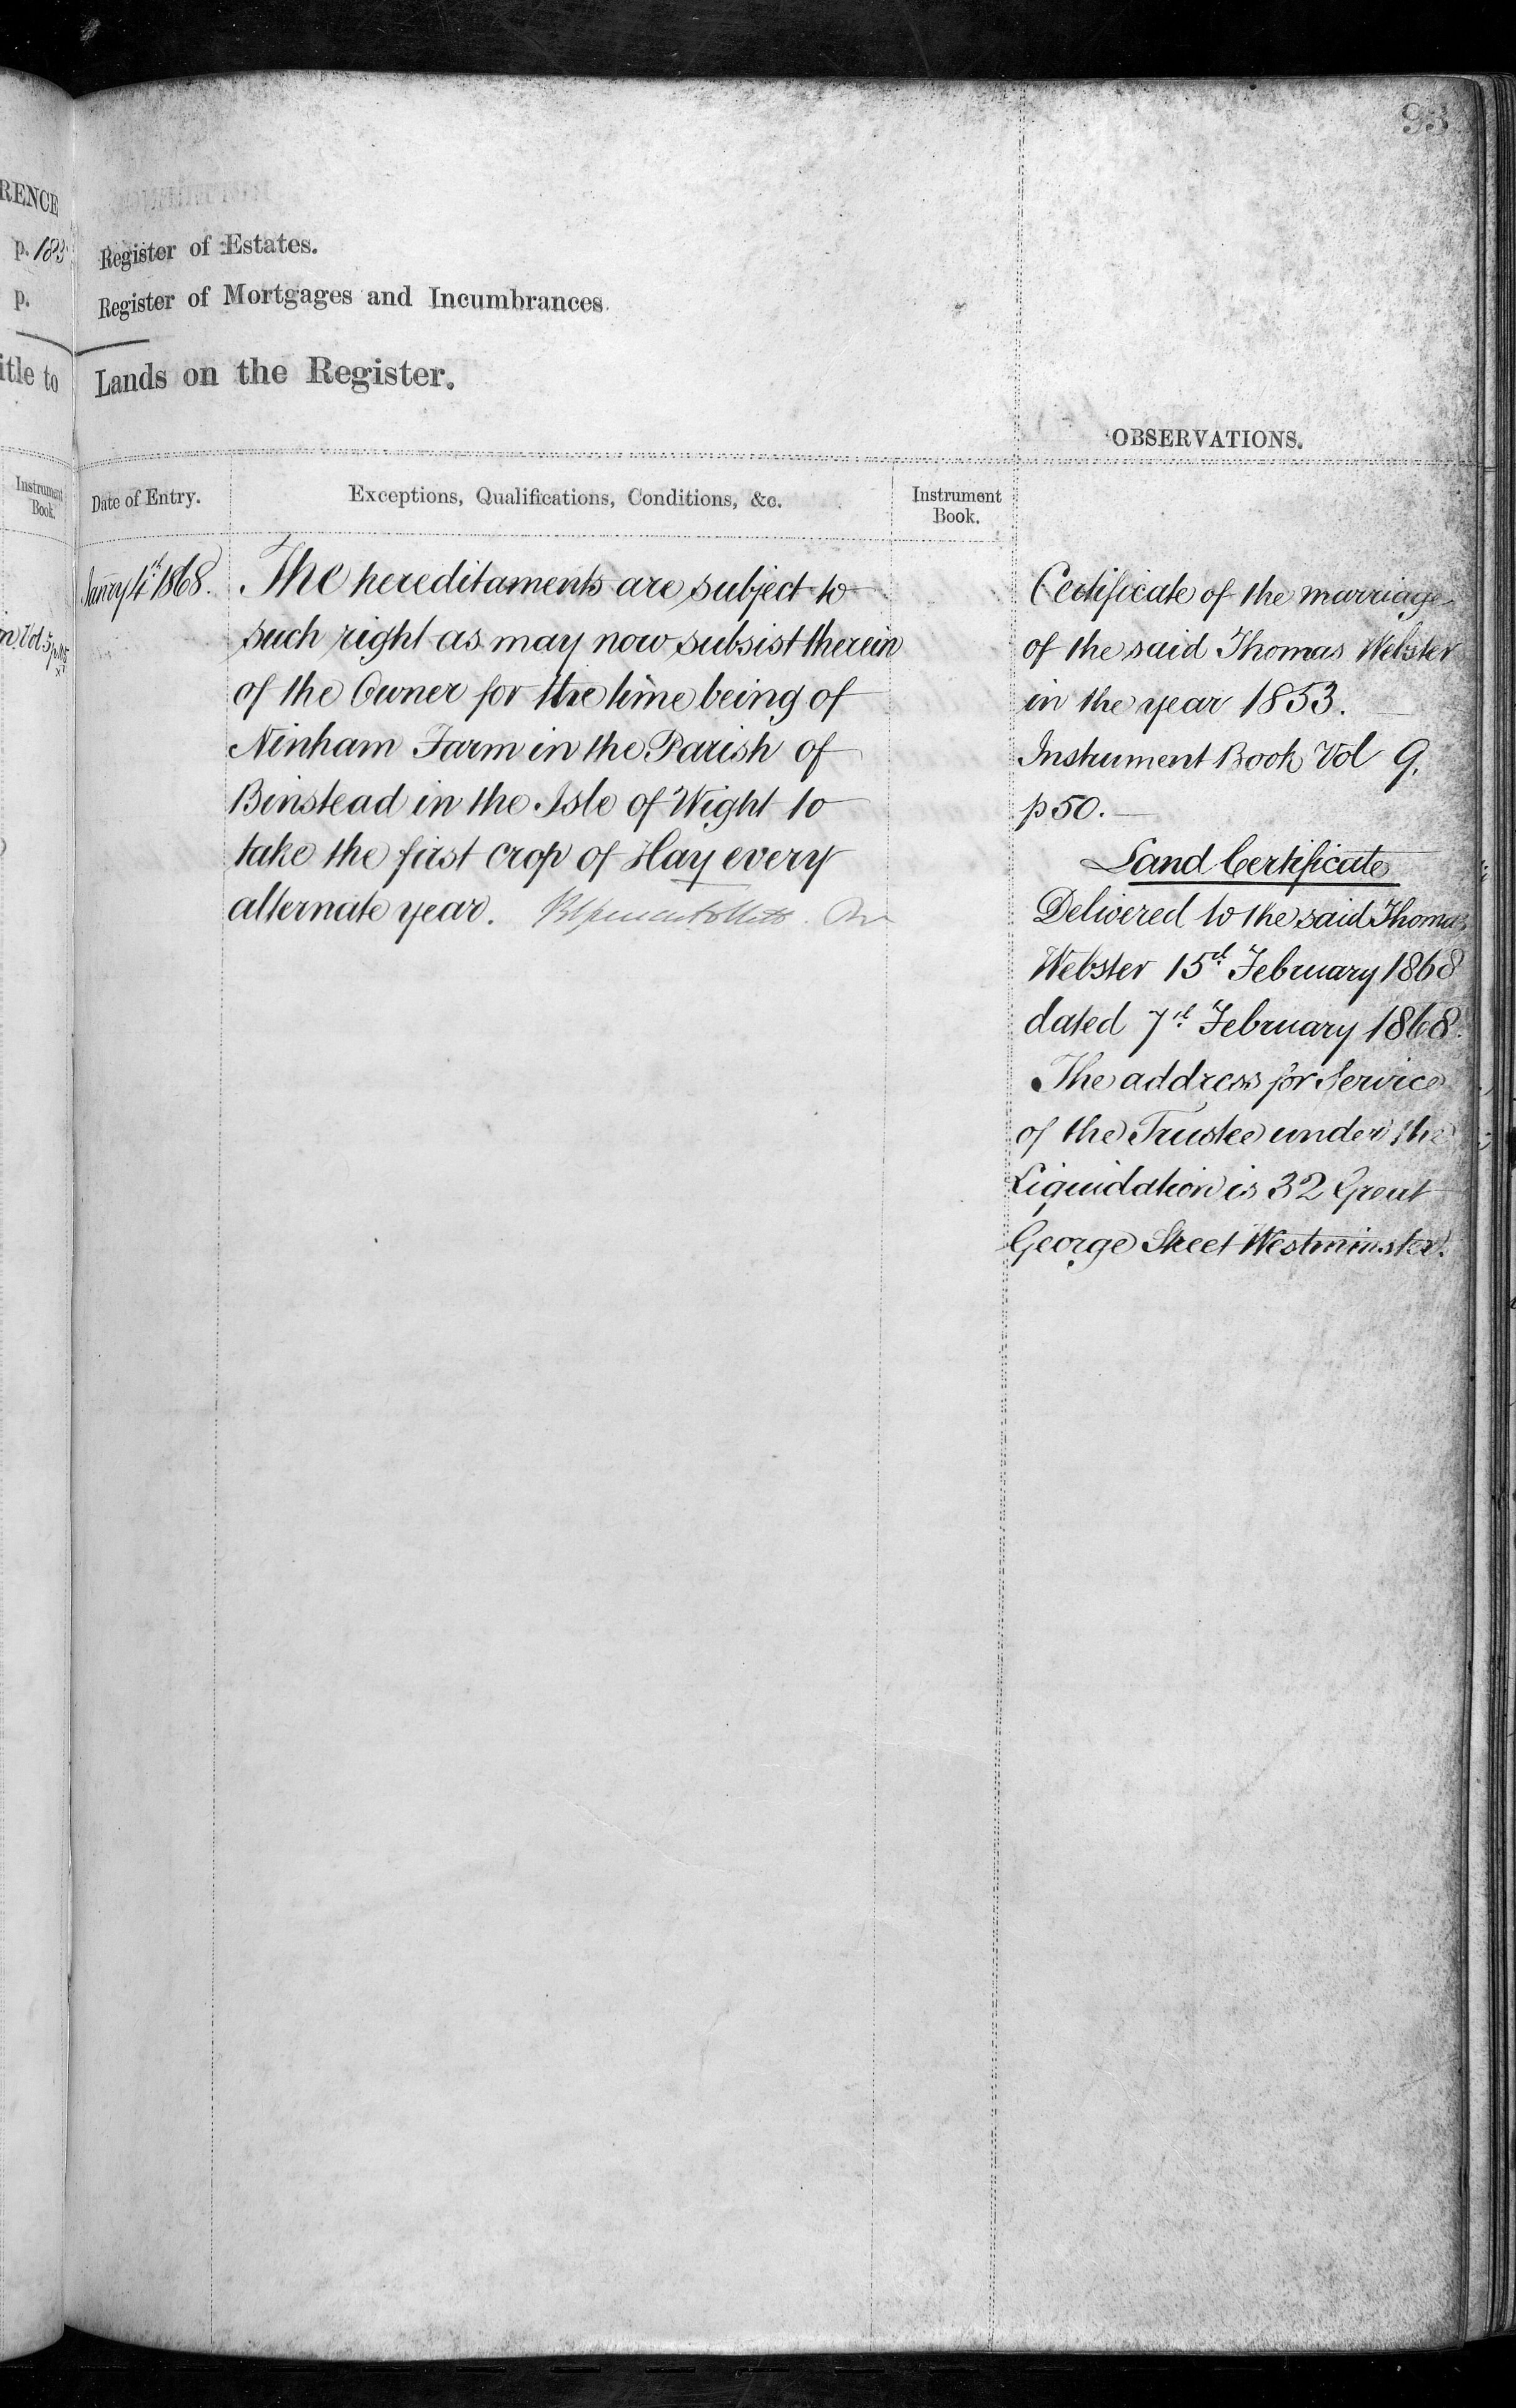 93
RENCE
p. 183
p.
itle to
Instrument
Book.
Vol 5
Register of Estates.
Register of Mortgages and Incumbrances.
Lands on the Register.
Date of Entry.
Exceptions, Qualifications, Conditions, &c.
Instrument
Book.
Janry 4th 1868.
The hereditaments are subject to
such right as may now subsist therein
of the Owner for the time being of
Ninham Farm in the Parish of
Binstead in the Isle of Wight to
take the first crop of Hay every
alternate year.
OBSERVATIONS.
Certificate of the marriage
of the said Thomas Webster
in the year 1853.
Instrument Book Vol 9.
p 50.
Land Certificate
Delivered to the said Thomas
Webster 15th February 1868
dated 7th February 1868.
The address for Service
of the Trustee under the
Liquidation is 32 Great
George Street Westminster.